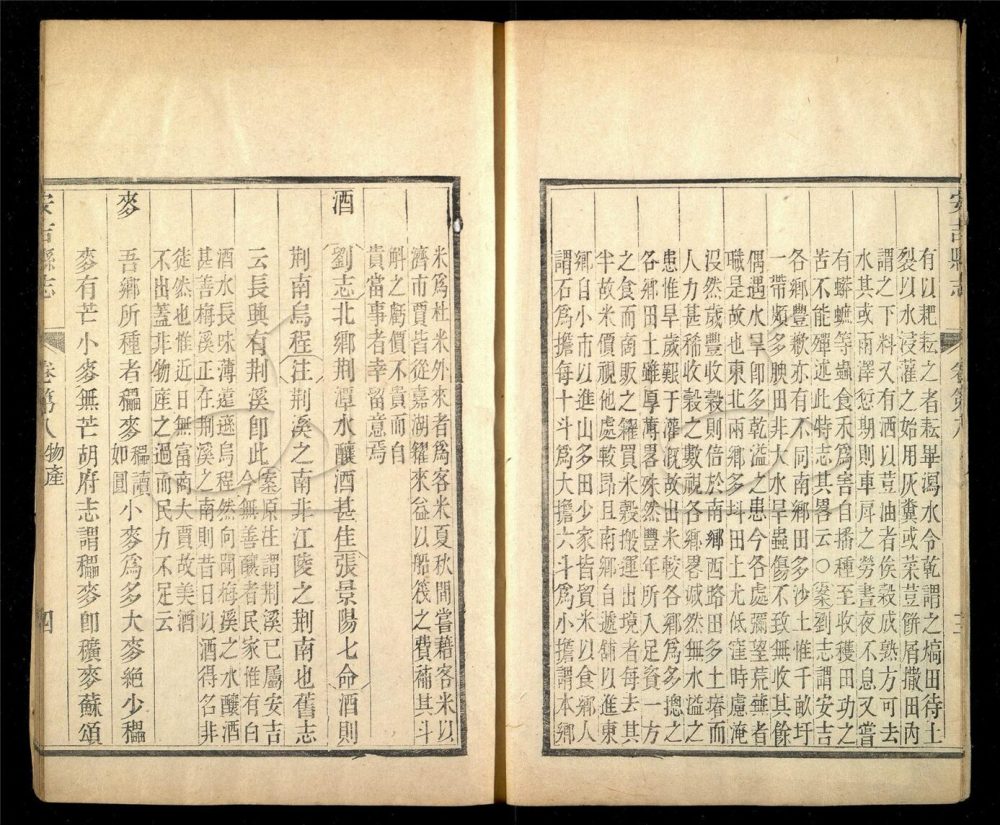 安吉縣志
卷第八
三
有以耙耘之者耘畢瀉水令乾謂之塙田待土
裂以水浸灌之始用灰糞或菜荳餅屑撒田內
謂之下料又有洒以荳油者俟穀成熟方可去
水其或雨澤愆期則車戽之勞晝夜不息又嘗
有蟒蟅等蟲食禾為害自播種至收穫田功之
苦不能殫述此特志其畧云〇案劉志謂安吉
各鄉豐歉亦有不同南鄉田多沙土惟千畝圩
一帶頗多腴田非大水旱蟲傷不致無收其餘
偶遇水旱即多乾溢之患今各處彌望荒蕪者
職是故也東北兩鄉多圩田土尤低窪時慮淹
沒然歲豐收穀則倍於南鄉西路田多土瘠而
人力甚稀收穀之數視各鄉畧減然無水溢之
患惟旱歲艱于灌溉故出米較各鄉為多總之
各鄉田土雖厚薄畧殊然豐年所入足資一方
之食而商販之糴買米穀搬運出境者每去其
半故米價視他處較昂且南鄉自遞舖以進東
鄉自小市以進山多田少家皆貿米以食鄉人
謂石為擔每十斗為大擔六斗為小擔謂本鄉
米為杜米外來者為客米夏秋間嘗藉客米以
濟市賈皆從嘉湖糴來益以船筏之費補其斗
斛之虧價不貴而自
貴當事者幸留意焉
酒
劉志北鄉荆潭水釀酒甚佳張景陽七命酒則
荆南烏程注荆溪之南非江陵之荆南也舊志
云長興有荆溪卽此案原注謂荆溪已屬安吉
今無善釀者民家惟有白
酒水長味薄遠遜烏程然向聞梅溪之水釀酒
甚善梅溪正在荆溪之南則昔日以酒得名非
徒然也惟近日無富商大賈故美酒
不出蓋非物產之過而民力不足云
麥
吾鄉所種者䅽麥䅽讀如圓小麥為多大麥絶少䅽
麥有芒小麥無芒胡府志謂䅽麥卽穬麥蘇頌
安吉縣志
卷第八 物產
四